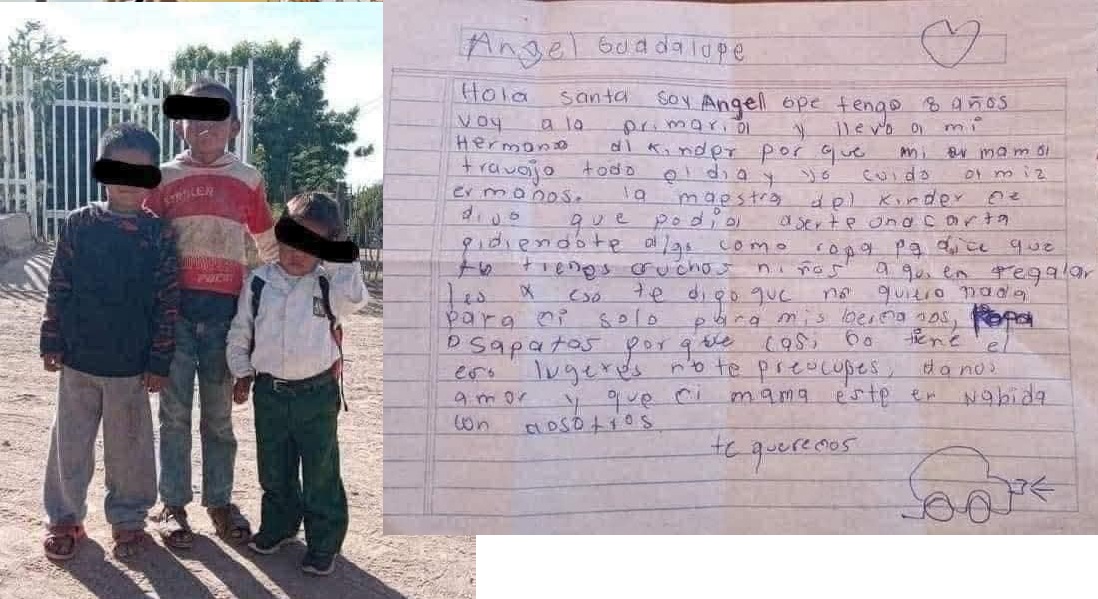 Angel Guadalupe
Hola santa soy Angel ope tengo 8 años
voy a la primaria y llevo a mi
Hermano al kinder por que mi mama
travaja todo el dia y yo cuido a miz
ermanos. la maestra del kinder me
dijo que podia aserte una carta
pidiendote algo como ropa pa dice que
tu tienes muchos niños a quien regalar
les x eso te digo que no quiero nada
para mi solo para mis hermanos, Ropa
o sapatos porque casi no tiene el
eso lugeres no te preocupes, danos
amor y que mi mama este en nabida
con nosotros.
te queremos